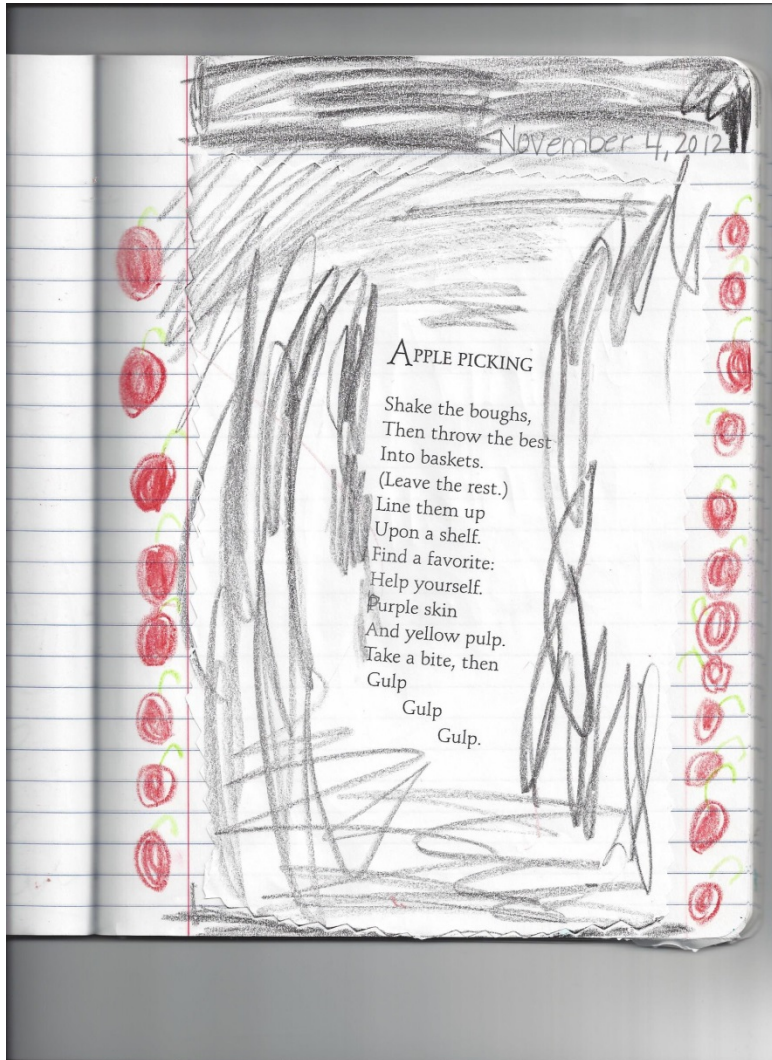 November 4, 2012
APPLE PICKING
Shake the boughs,
Then throw the best
Into baskets.
(Leave the rest.)
Line them up
Upon a shelf.
Find a favorite:
Help yourself.
Purple skin
And yellow pulp.
Take a bite, then
Gulp
Gulp
Gulp.